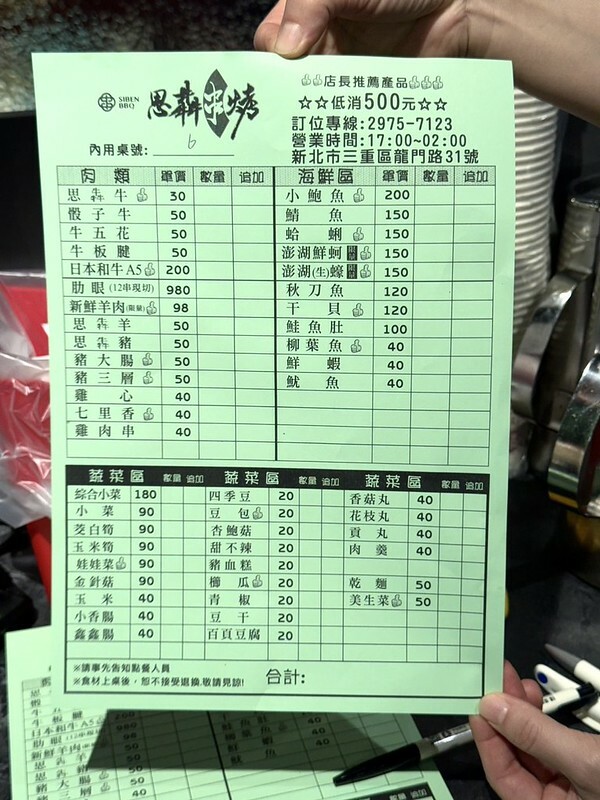 SIBEN BBQ
思犇串烤
👍👍店長推薦產品👍👍👍
☆☆低消500元☆☆
訂位專線:2975-7123
營業時間:17:00~02:00
新北市三重區龍門路31號
內用桌號: 6
肉類 單價 數量 追加
思犇牛👍 30
骰子牛 50
牛五花 50
牛板腱 50
日本和牛A5👍 200
肋眼(12串現切) 980
新鮮羊肉(限量)👍 98
思犇羊 50
思犇豬 50
豬大腸👍 50
豬三層👍 50
雞心 40
七里香👍 40
雞肉串 40
海鮮區 單價 數量 追加
小鮑魚👍 200
鯖魚 150
蛤蜊👍 150
澎湖鮮蚵👍 150
澎湖(生)蠔👍 150
秋刀魚 120
干貝👍 120
鮭魚肚 100
柳葉魚👍 40
鮮蝦 40
魷魚 40
蔬菜區 數量 追加
綜合小菜 180
小菜 90
茭白筍 90
玉米筍 90
娃娃菜👍 90
金針菇 90
玉米 40
小香腸 40
鑫鑫腸 40
蔬菜區 數量 追加
四季豆 20
豆包👍 20
杏鮑菇 20
甜不辣 20
豬血糕 20
櫛瓜👍 20
青椒 20
豆干 20
百頁豆腐 20
蔬菜區 數量 追加
香菇丸 40
花枝丸 40
貢丸 40
肉羹 40
乾麵 50
美生菜👍 50
※請事先告知點餐人員
※食材上桌後，恕不接受退換.敬請見諒!
合計:
牛板腱
日本和牛A5👍 200
肋眼(12串現切) 980
新鮮羊肉(限量)👍 98
思犇羊 50
豬大腸👍 50
豬三層👍 50
柳葉魚👍 40
鮮蝦 40
魷魚 40